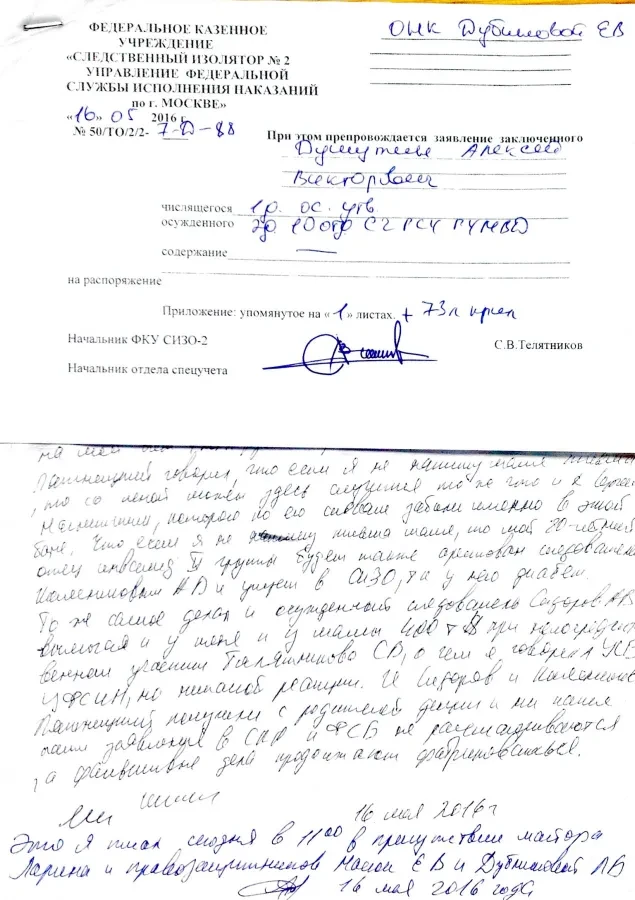 ФЕДЕРАЛЬНОЕ КАЗЕННОЕ
УЧРЕЖДЕНИЕ
«СЛЕДСТВЕННЫЙ ИЗОЛЯТОР № 2
УПРАВЛЕНИЕ ФЕДЕРАЛЬНОЙ
СЛУЖБЫ ИСПОЛНЕНИЯ НАКАЗАНИЙ
по г. МОСКВЕ»
«16» 05 2016 г.
№ 50/ТО/2/2- 7-Д-88
ОНК Дубниковой ЕВ
При этом препровождается заявление заключенного
Алексея
Викторовича
числящегося 1р. ос. утв
осужденного 2р. 10 отд СЧ ГСУ ГУМВД
содержание —
на распоряжение
Приложение: упомянутое на «1» листах. + 73л
Начальник ФКУ СИЗО-2
С.В.Телятников
Начальник отдела спецучета
на мой
говорил, что если я не напишу маме
, то со мной может здесь случится то же что и с
, которого по его словам забили именно в этой
бане. Что если я не письма маме, то мой 70-летний
отец инвалид II группы будет также арестован следователем
АВ и умрет в СИЗО, т.к у него диабет.
То же самое делал и осужденный следователь Сидоров АВ
вымогая и у меня и у мамы 400 т $ при непосредст
венном участии Телятникова СВ, о чем я говорил УСБ
УФСИН, но никакой реакции. И Сидоров и
получили с родителей деньги и ни какие
заявления в СКР и ФСБ не рассматриваются
, а фальшивые дела продолжают фабриковаться.
16 мая 2016г
Это я писал сегодня в 11 00 в присутствии майора
Ларина и правозащитников ЕВ и Дубниковой ЛВ
16 мая 2016 года